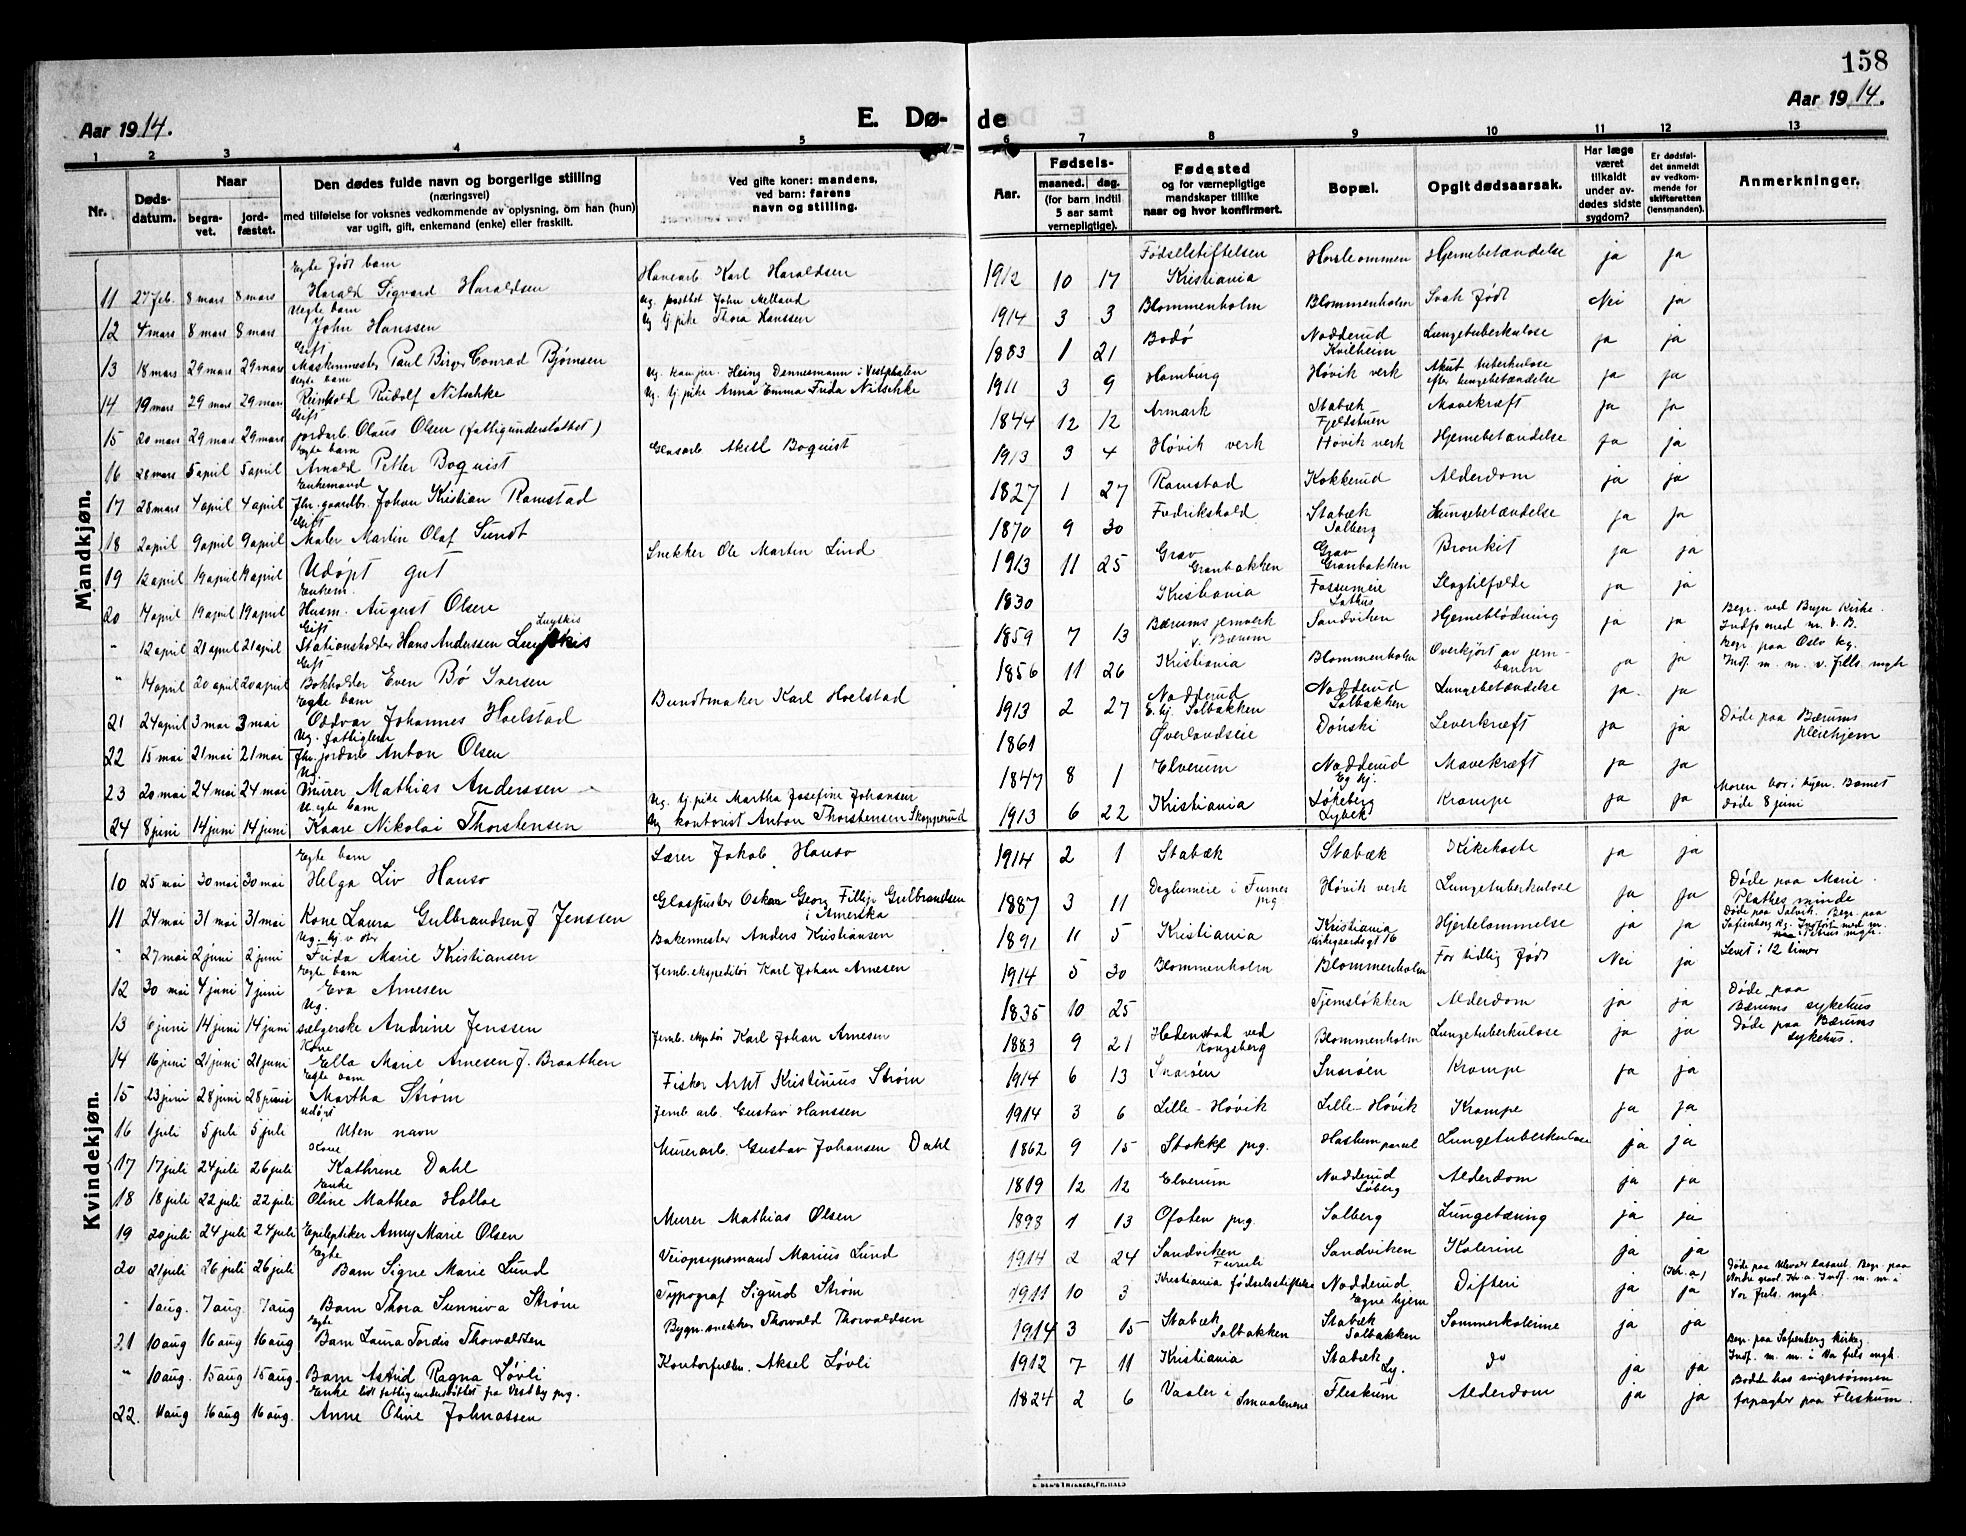 158
Aar 1914.
E. Døde
Aar 1914.
1 2 3 4 5 6 7 8 9 10 11 12 13
Nr.
Døds-
datum.
Naar
begra-
vet.
jord-
fæstet.
Den dødes fulde navn og borgerlige stilling
(næringsvei)
med tilføielse for voksnes vedkommende av oplysning, om han (hun)
var ugift, gift, enkemand (enke) eller fraskilt.
Ved gifte koner: mandens,
ved barn: farens
navn og stilling.
Aar.
Fødsels-
maaned. dag.
(for barn indtil
5 aar samt
vernepligtige).
Fødested
og for værnepligtige
mandskaper tillike
naar og hvor konfirmert.
Bopæl.
Opgit dødsaarsak.
Har læge
været
tilkaldt
under av-
dødes sidste
sygdom?
Er dødsfal-
det anmeldt
av vedkom-
mende for
skifteretten
(lensmanden).
Anmerkninger.
Mandkjøn.
Egte født barn
11 27 feb. 8 mars 8 mars Harald Sigvard Haraldsen Havearb Karl Haraldsen 1912 10 17 Fødselstiftelsen Kristiania Hjernebetændelse ja ja
Uegte barn
12 4 mars 8 mars 8 mars John Hanssen Ug. postbet John Melland Ug tj pike Thora Hanssen 1914 3 3 Blommenholm Blommenholm Svak født Nei ja
Gift
13 18 mars 29 mars 29 mars Maskinmester Paul Birger Conrad Bjørnsen 1883 1 21 Bodø Nadderud Kvilheim Lungetuberkulose ja ja
Uegte barn
14 19 mars 29 mars 29 mars Reinhold Rudolf Nitschke Ug. Heinz Dannemann i Vestphalen Ug. tj. pike Anna Emma Frida Nitschke 1911 3 9 Hamburg Høvik verk Akut tuberkulose efter lungebetændelse ja ja
Gift
15 20 mars 29 mars 29 mars Jordarb. Olaus Olsen (fattigunderstøttet) 1844 12 12 Aremark Stabæk Fjeldstuen Mavekræft ja ja
Egte barn
16 28 mars 5 april 5 april Arnold Petter Boquist Glasarb Aksel Boquist 1913 3 4 Høvik verk Høvik verk Hjernebetændelse ja ja
Enkemand
17 28 mars 4 april 4 april Fhv. gaardbr. Johan Kristian Ramstad 1827 1 27 Ramstad Kokkerud Alderdom ja ja
Gift
18 2 april 9 april 9 april Maler Martin Olaf Sundt 1870 9 30 Fredrikshald Stabæk Solberg Lungebetændelse ja ja
19 12 april 19 april 19 april Udøpt gut Snekker Ole Martin Lind 1913 11 25 Grav Granbakken Grav Granbakken Bronkit ja ja
Enkem.
20 14 april 19 april 19 april Husm. August Olsen 1830 Kristiania Fossumeie Slagtilfælde ja ja
Gift
" 12 april 21 april 21 april Stationsholder Hans Anderssen 1859 7 13 Bærums jernverk v. Bærum Sandviken Hjerneblødning ja ja Begr. ved Bryn Kirke.
Gift
" 14 april 20 april 20 april Bokholder Even Bø Iversen 1856 11 26 Kristiania Blommenholm Overkjørt av jernbanen ja ja Begr. paa Oslo kg.
Egte barn
21 24 april 3 mai 3 mai Oddvar Johannes Hoelstad Bundtmaker Karl Hoelstad 1913 2 27 Nadderud E. hj. Solbakken Nadderud Solbakken Lungebetændelse ja ja
Ug. fattiglem
22 15 mai 21 mai 21 mai Fhv. jordarb Anton Olsen 1861 Øverlandseie Dønski Leverkræft ja ja Døde paa Bærums pleiehjem
Ug.
23 20 mai 24 mai 24 mai Murer Mathias Anderssen 1847 8 1 Elverum Nadderud Eg hj. Mavekræft ja ja
Uegte barn
24 8 juni 14 juni 14 juni Kaare Nikolai Thorstensen Ug. tj. pike Martha Josefine Johansen Ug kontorist Anton Thorstensen Skapperud 1913 6 22 Kristiania Løkeberg Lysæk Krampe ja ja Moren bor i hjem. Barnet døde 8 juni
Kvindekjøn.
Egte barn
10 25 mai 30 mai 30 mai Helga Liv Hanso Lærer Jakob Hanso 1914 2 1 Stabæk Stabæk Kikehoste ja ja
11 24 mai 31 mai 31 mai Kone Laura Gulbrandsen f Jenssen Glaspuster Oskar Georg Fillip Gulbrandsen i Amerika 1887 3 11 i Furnes prg Høvik verk Lungetuberkulose ja ja Døde paa Marie Plathes minde
Ug. hj v. mor
" 27 mai 2 juni 2 juni Frida Marie Kristiansen Bakermester Anders Kristiansen 1891 11 5 Kristiania Kristiania Kirkegaardsgt 16 Hjertelammelse ja ja
Egte barn
12 30 mai 4 juni 7 juni Eva Arnesen Jernb. ekspeditør Karl Johan Arnesen 1914 5 30 Blommenholm Blommenholm For tidlig født Nei ja Levet i 12 timer
Ug.
13 6 juni 14 juni 14 juni sælgerske Andrine Jenssen 1835 10 25 Tjernsløkken Alderdom ja ja Døde paa Bærums sykehus
Kone
14 16 juni 21 juni 21 juni Ella Marie Arnesen f. Braathen Jernb. ekspedør Karl Johan Arnesen 1883 9 21 Hedenstad ved Kongsberg Blommenholm Lungetuberkulose ja ja Døde paa Bærums sykehus.
Egte barn
15 23 juni 28 juni 28 juni Martha Strøm Fisker Arnt Kristinius Strøm 1914 6 13 Snarøen Snarøen Krampe ja ja
Udøpt
16 1 juli 5 juli 5 juli Uten navn Jernb arb. Gustav Hanssen 1914 3 6 Lille-Høvik Lille-Høvik Krampe ja ja
Kone
17 17 juli 24 juli 26 juli Kathrine Dahl Murerarb. Gustav Johansen Dahl 1862 9 15 Stokke prg. Haslum parcel Lungetuberkulose ja ja
Enke
18 18 juli 22 juli 22 juli Oline Mathea Holloe 1819 12 12 Elverum Nadderud Løberg Alderdom ja ja
19 20 juli 24 juli 24 juli Epileptiker Anny Marie Olsen Murer Mathias Olsen 1898 1 13 Ofoten prg. Solberg Lungetæring ja ja
Egte
20 21 juli 26 juli 26 juli Barn Signe Marie Lund Veiopsynsmand Marius Lund 1914 2 24 Sandviken Furuli Sandviken Kolerine ja ja
" 1 aug. 7 aug. 7 aug Barn Thora Sunniva Strøm Typograf Sigurd Strøm 1911 10 3 Kristiania fødselsstiftelse Nadderud Egne hjem Difteri ja (Kr.a) ja Døde paa Ulevaal lasaret. Begr. paa Nordre gravl. Kr.a. Indf. m. m. i Vor frels. mgh.
Egte
21 10 aug 16 aug 16 aug Barn Laura Tordis Thorvaldsen Bygn. snekker Thorvald Thorvaldsen 1914 3 15 Stabæk Solbakken Stabæk Solbakken Sommerkolerine ja ja
" 10 aug. 15 aug 15 aug. Barn Astrid Ragna Løvli Kontorfuldm. Aksel Løvli 1912 7 11 Kristiania Stabæk Ly. do ja ja Begr. paa Sofienberg kirkeg. Indf. m. m. i Vor frels mgh.
Enke lidt fattigunderstøttet fra Vestby prg.
22. 11 aug 16 aug 16 aug. Anne Oline Johnassen 1824 2 6 Vaaler i Smaalenene Fleskum Alderdom ja ja Bodde hos svigersønnen forpagter paa Fleskum.